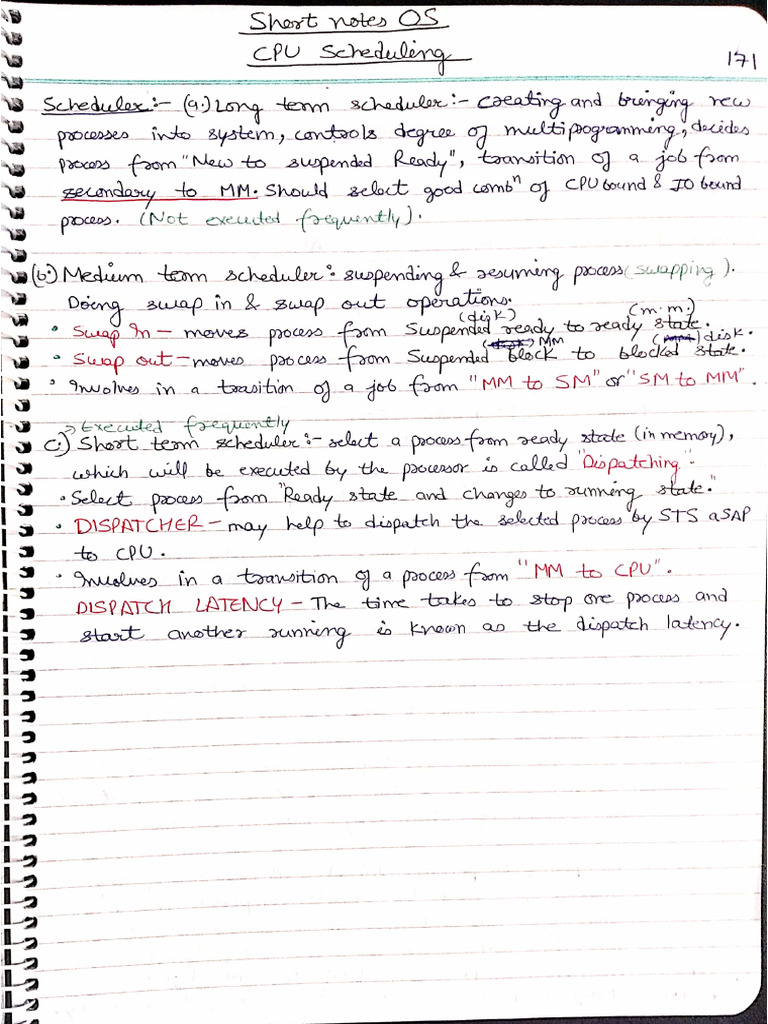 Short notes OS
CPU Scheduling
171
Scheduler:- (a.) Long term scheduler:- Creating and bringing new
processes into system, controls degree of multiprogramming, decides
process from "New to suspended Ready", transition of a job from
secondary to MM. Should select good combⁿ of CPU bound & IO bound
process. (Not executed frequently).
(b.) Medium term scheduler: suspending & resuming process (swapping).
Doing swap in & swap out operations.
(disk) (m.m.)
• Swap In - moves process from Suspended ready to ready state.
MM ( ) disk.
• Swap out - moves process from Suspended block to blocked state.
• Involves in a trasition of a job from "MM to SM" or "SM to MM".
→ Executed frequently
c) Short term scheduler:- select a process from ready state (in memory),
which will be executed by the processor is called "Dispatching".
• Select process from "Ready state and changes to running state."
• DISPATCHER - may help to dispatch the selected process by STS aSAP
to CPU.
• Involves in a transition of a process from "MM to CPU".
DISPATCH LATENCY - The time takes to stop one process and
start another running is known as the dispatch latency.